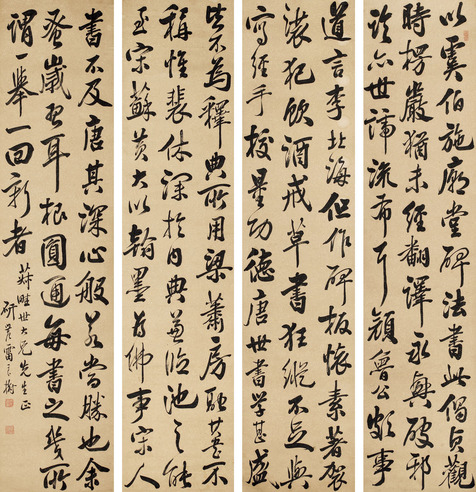 以虞伯施廟堂碑法書此偈貞觀
時楞嚴猶未經翻譯永興破邪
論亦世諦流布耳顏魯公頗事
道言李北海但作碑板懷素著袈
裟犯飲酒戒草書狂縱不足與
寫經手校量功德唐世書学甚盛
皆不為釋典所用梁蕭房融不
稱惟裴休深於內典兼臨池之能
至宋蘇黃大以翰墨為佛事宋人
書不及唐其深心般若當勝也余
蚤歲耳根圓通每書之幾所
謂一舉一回新者
世大兄先生正